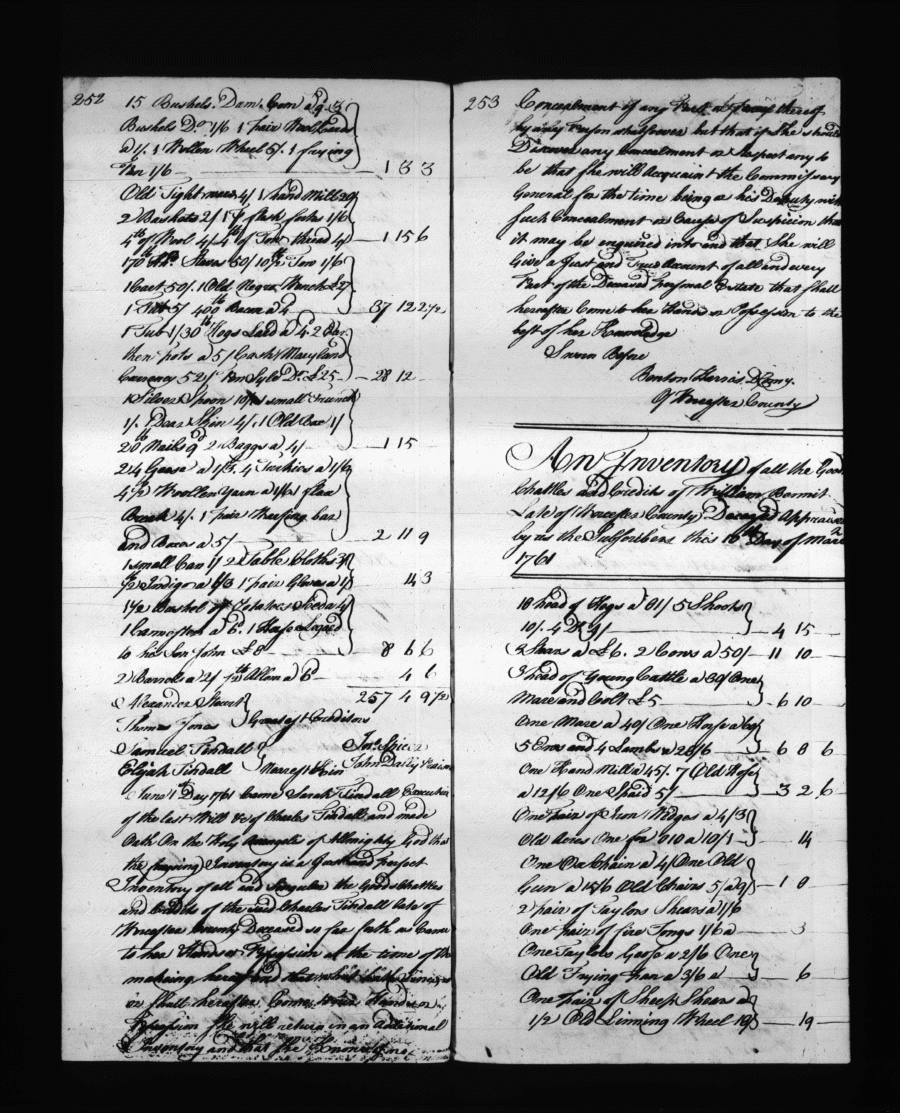 252
15 Bushels. Dam. Corn a 9. 3
Bushels Do. 1/6 1 pair Wooll Cards
a 1/. 1 Wollen Wheel 5/. 1 frying
Pan 1/6 1 3 3
Old Tight 4/ 1 hand Mill 20/
2 Baskets 2/ 1 flesh forks 1/6
4 lb of Wool 4/ 4 lb of Tow thread 4/ 1 15 6
170 Staves 50/ 10 Tow 1/6
1 Cart 50/. 1 Old Negro Wench £27
1 5/ 400 lb Bacon a 4 37 12 2 1/2
1 Tub 1/ 30 lb Hogs Lard a 4. 2 Ear
then pots a 5/ Cash Maryland
Currency 52/ Do. £25 28 12
1 Silver Spoon 10/ small Trunk
1/. 1 Dear Skin 4/. 1 Old Box 1/
20 lb Nails 9d 2 Baggs a 4/ 1 15
24 Geese a 1/3. 4 Turkies a 1/6
4 1/2 Woollen Yarn a 1/6 1 flax
Brake 4/. 1 pair bar
and Boxes a 5/ 2 11 9
1 small Can 1/ 2 Table Cloths 3/
1/2 Indigo a 6/3 1 pair Gloves a 1/ 14 3
1 1/2 Bushel of Potatoes Seeds 4/
1 a 6. 1 Horse Legacd
to his Son John £8 8 6 6
2 Barrels a 2/ 1/2 lb Allom a 6 4 6
257 4 9 1/2
Alexander Stuart
Thomas Jones Greatest Creditors
Samuel Tindall Jno. Spicer
Elijah Tindall Nearest Kin John Dashiell
June 1st Day 1761 Came Sarah Tindall Executrix
of the last Will &c of Charles Tindall and made
Oath On the Holy Evangels of Almighty God that
the foregoing Inventory is a Just and perfect
Inventory of all and Singular the Goods Chattles
and Credits of the said Charles Tindall late of
Worcester County Deceased so far forth as Came
to her Hands or Possession at the time of the
makeing hereof and that what hath Since or
in Shall hereafter Come to her Hands or
Possession she will return in an Additional
Inventory and that she Knows of no
253
Concealment of any Part or parcel thereof
by any Person whatsoever but that if She should
Discover any Concealment or Suspect any to
be that she will Acquaint the Commissary
General for the time being or his Deputy with
such Concealment or Cause of Suspicion that
it may be enquired into and that She will
Give a Just and True Account of all and every
Part of the Deceased Personal Estate that shall
hereafter Come to her Hands or Possession to the
best of her Knowledge
Sworn Before
Benton Harris D. Comy.
Of Worcester County
An Inventory of all the Goods
Chattles and Credits of William
Late of Worcester County Deceasd Appraised
by us the Subscribers this 16th Day of March
1761
18 head of Hogs a 81/ 5 Shoats
10/. 4 Do 4 15
2 Steers a £6. 2 Cows a 50/ 11 10
3 head of Young Cattle a 30/ One
Mare and Colt £5 6 10
One Mare a 40/ One Horse a 60/
5 Ewes and 4 Lambs a 28/6 6 8 6
One Hand Mill a 45/. 7 Old Hoes
a 12/6 One Spaid 5/ 3 2 6
One pair of Iron Wedges a 4/3
Old Axes One for a 10/ 14
One Ox Chain a 4/ One Old
Gun a 15/6 Old Chairs 5/ 1 8
2 pair of Taylors Shears a 1/6
One pair of fire Tongs 1/6 a 3
One Taylors Goose a 2/6 One
Old Frying Pan a 3/6 a 6
One pair of Sheep Shears a
1/2 Old Linning Wheel 18/ 19